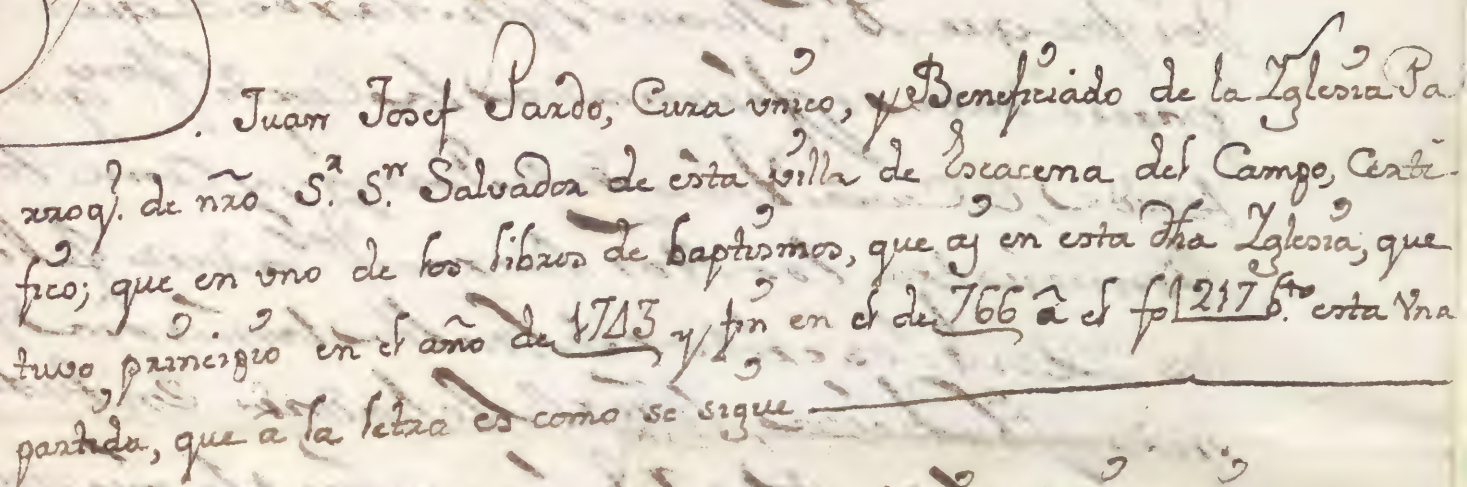 D. Juan Josef Pardo, Cura vnico, y Beneficiado de la Yglesia Pa
rroq.l de nr̃o S.r S.n Salvador de esta villa de Escacena del Campo, Certi-
fico; que en vno de los libros de baptismos, que ay en esta dha Yglesia, que
tuvo principio en el año de 1743 y fin en el de 766 â el fol 217 b.to esta Vna
partida, que â la letra es como se sigue